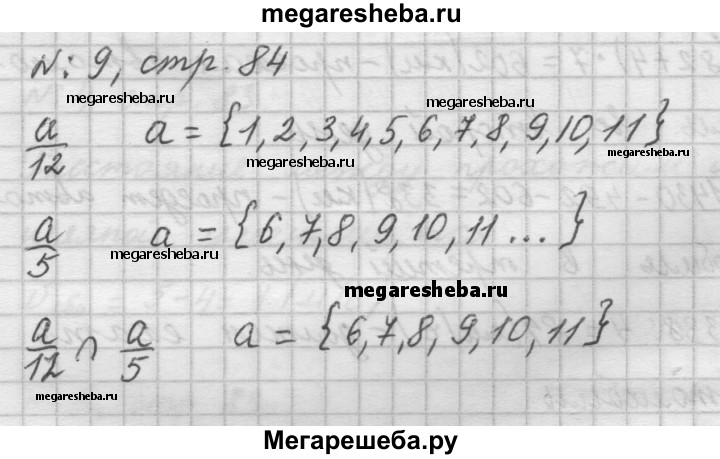 megaresheba.ru
№: 9, стр. 84
megaresheba.ru
megaresheba.ru
a/12 a = {1, 2, 3, 4, 5, 6, 7, 8, 9, 10, 11}
megaresheba.ru
megaresheba.ru
a/5 a = {6, 7, 8, 9, 10, 11 ... }
megaresheba.ru
megaresheba.ru
a/12 ∩ a/5 a = {6, 7, 8, 9, 10, 11}
megaresheba.ru
Мегарешеба.ру